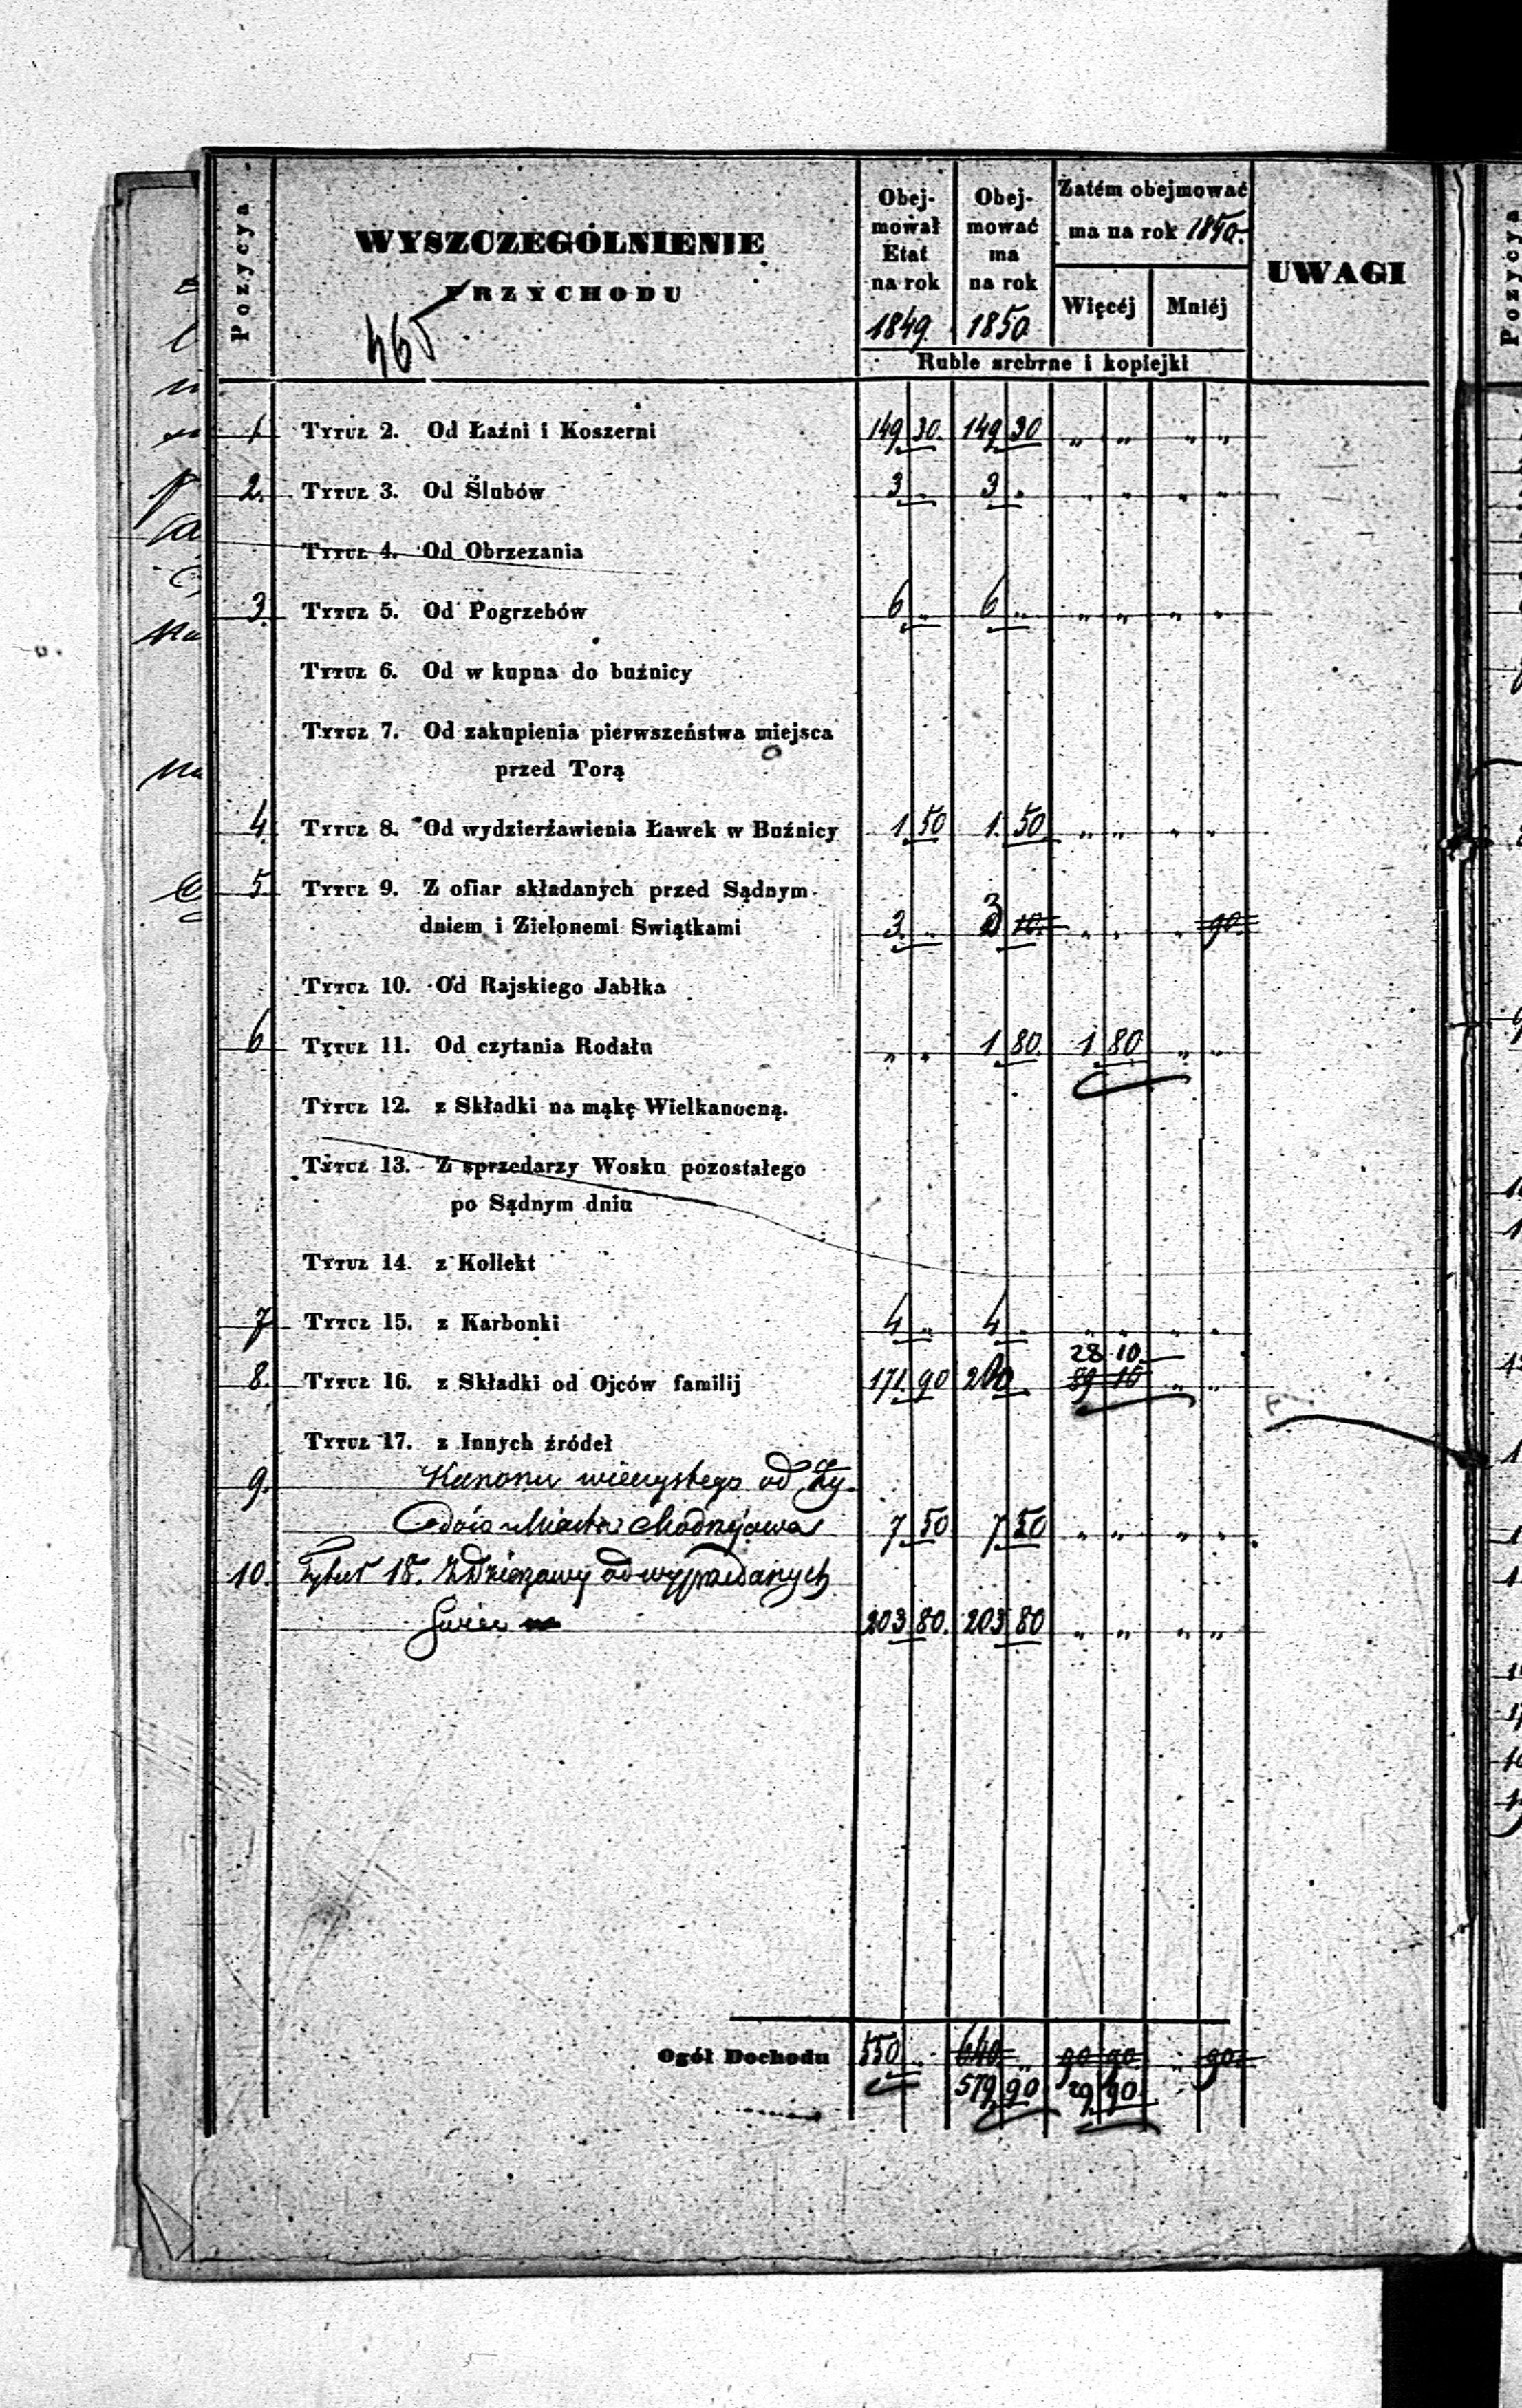 Pozycya
WYSZCZEGÓLNIENIE
PRZYCHODU
465
Obej-
mował
Etat
na rok
1849.
Obej-
mować
ma
na rok
1850
Zatém obejmować
ma na rok 1850.
Więcéj Mniéj
Ruble srebrne i kopiejki
UWAGI
1 Tytuł 2. Od Łaźni i Koszerni 149 30. 149 30 „ „ „ „
2. Tytuł 3. Od Ślubów 3 „ 3 „ „ „ „ „
Tytuł 4. Od Obrzezania
3. Tytuł 5. Od Pogrzebów 6 „ 6 „ „ „ „ „
Tytuł 6. Od w kupna do buźnicy
Tytuł 7. Od zakupienia pierwszeństwa miejsca
przed Torą
4 Tytuł 8. Od wydzierżawienia Ławek w Buźnicy 1 50 1. 50 „ „ „ „
5 Tytuł 9. Z ofiar składanych przed Sądnym
dniem i Zielonemi Swiątkami 3. „ 3 10. „ „ „ 90.
Tytuł 10. Od Rajskiego Jabłka
6 Tytuł 11. Od czytania Rodału „ „ 1 80. 1 80 „ „
Tytuł 12. z Składki na mąkę Wielkanocną.
Tytuł 13. Z sprzedarzy Wosku pozostałego
po Sądnym dniu
Tytuł 14. z Kollekt
7 Tytuł 15. z Karbonki 4 „ 4 „ „ „ „ „
28 10
8. Tytuł 16. z Składki od Ojców familij 171. 90 200 „ 89 10 „ „
Tytuł 17. z Innych źródeł
9. Kanonu wieczystego od Ży
dów Miasta 7 50 7 50 „ „ „ „
10. Tytuł 18. Z Dzierzawy od wyprzedanych
203 80. 203 80 „ „ „ „
Ogół Dochodu 550 „ 640 „ 90 90 „ 90.
579 90 29 90